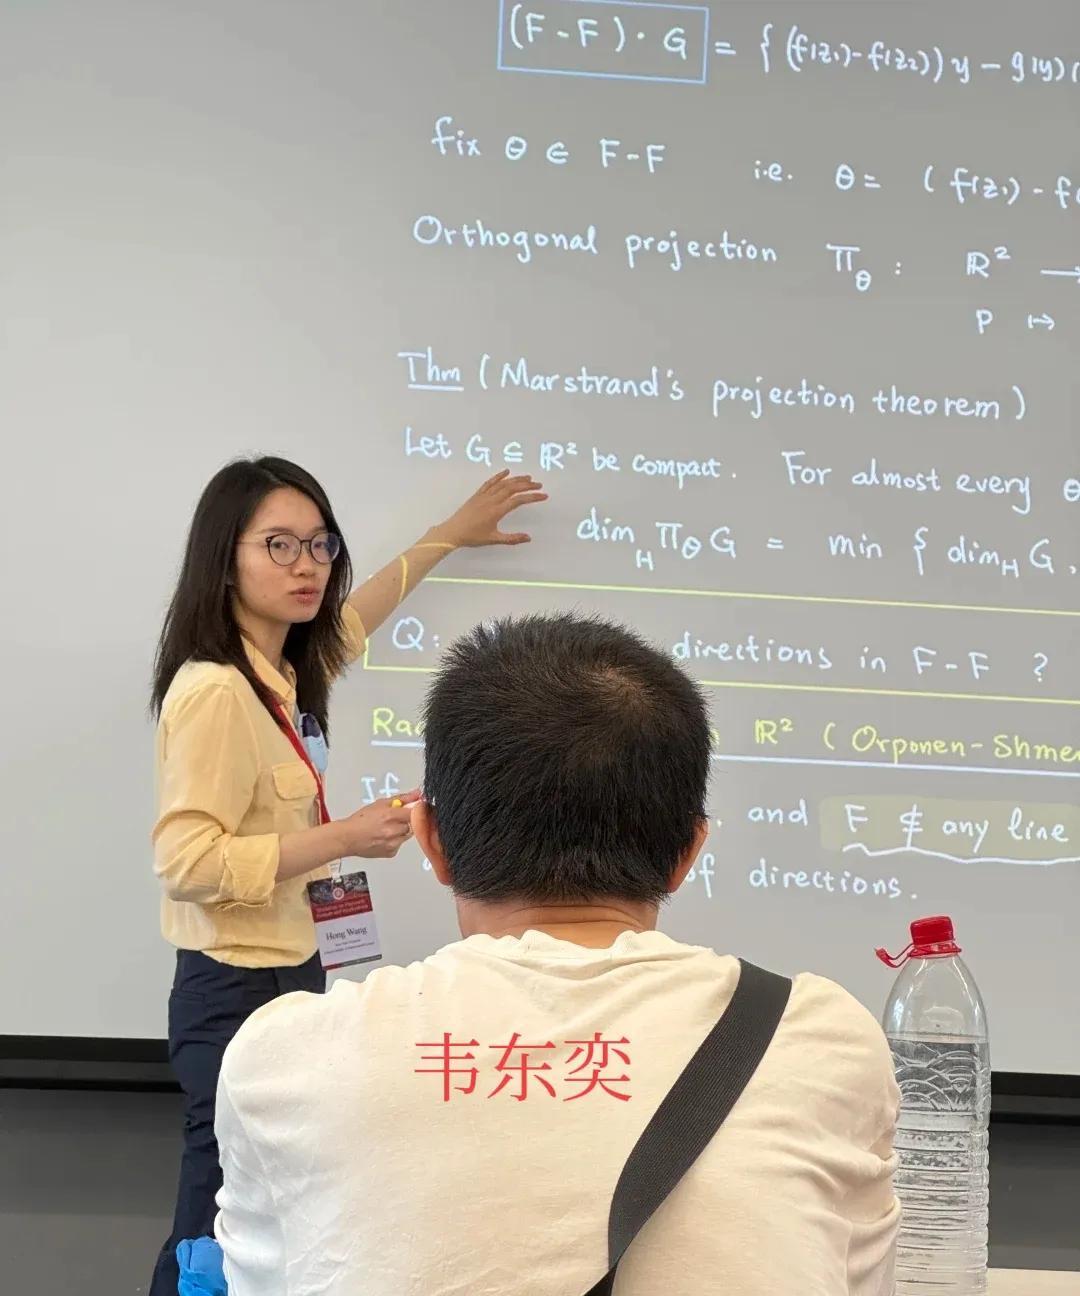 (F-F)·G = { (f(z₁)-f(z₂)) y - g(y)(
fix θ ∈ F-F i.e. θ = (f(z₁) - f(
Orthogonal projection π_θ : ℝ² →
p ↦
Thm (Marstrand's projection theorem)
Let G ⊆ ℝ² be compact. For almost every θ
dim_H π_θ G = min { dim_H G,
Q: directions in F-F ?
ℝ² (Orponen-Shme
If and F ⊄ any line
of directions.
Hong Wang
韦东奕